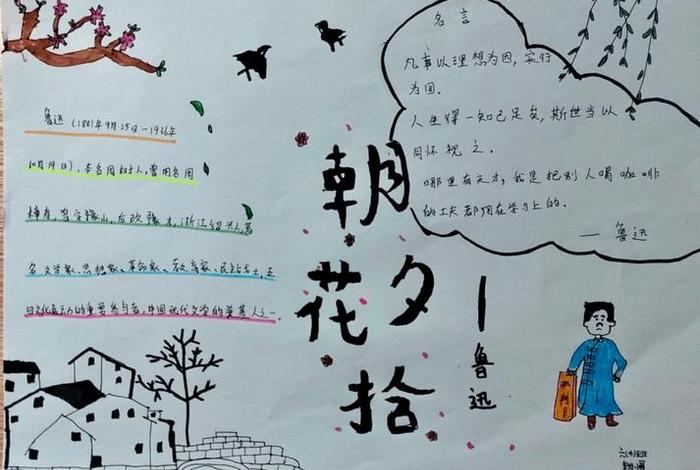 名言
凡事以理想为因，实行
为因.
人生得一知己足矣，斯世当以
同怀视之.
哪里有天才，我是把别人喝咖啡
的工夫都用在学习上的.
——鲁迅
鲁迅(1881年9月25日-1936年
10月19日)，本名周树人，曾用名周
樟寿，字豫山，后改豫才，浙江绍兴人，著
名文学家、思想家、革命家、教育家、民主战士，五
四文化运动的重要参与者，中国现代文学的奠基人之一.
朝
花
夕
拾
—鲁迅